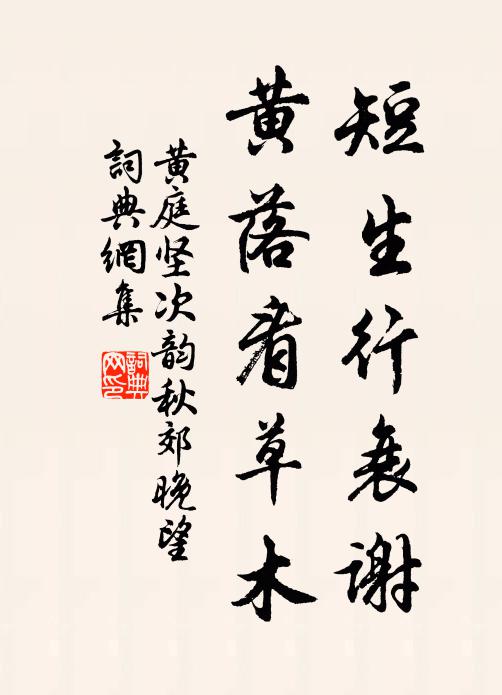 短生行衰谢
黄落看草木
黄庭坚次韵秋郊晚望
詞典網集
詞典網印